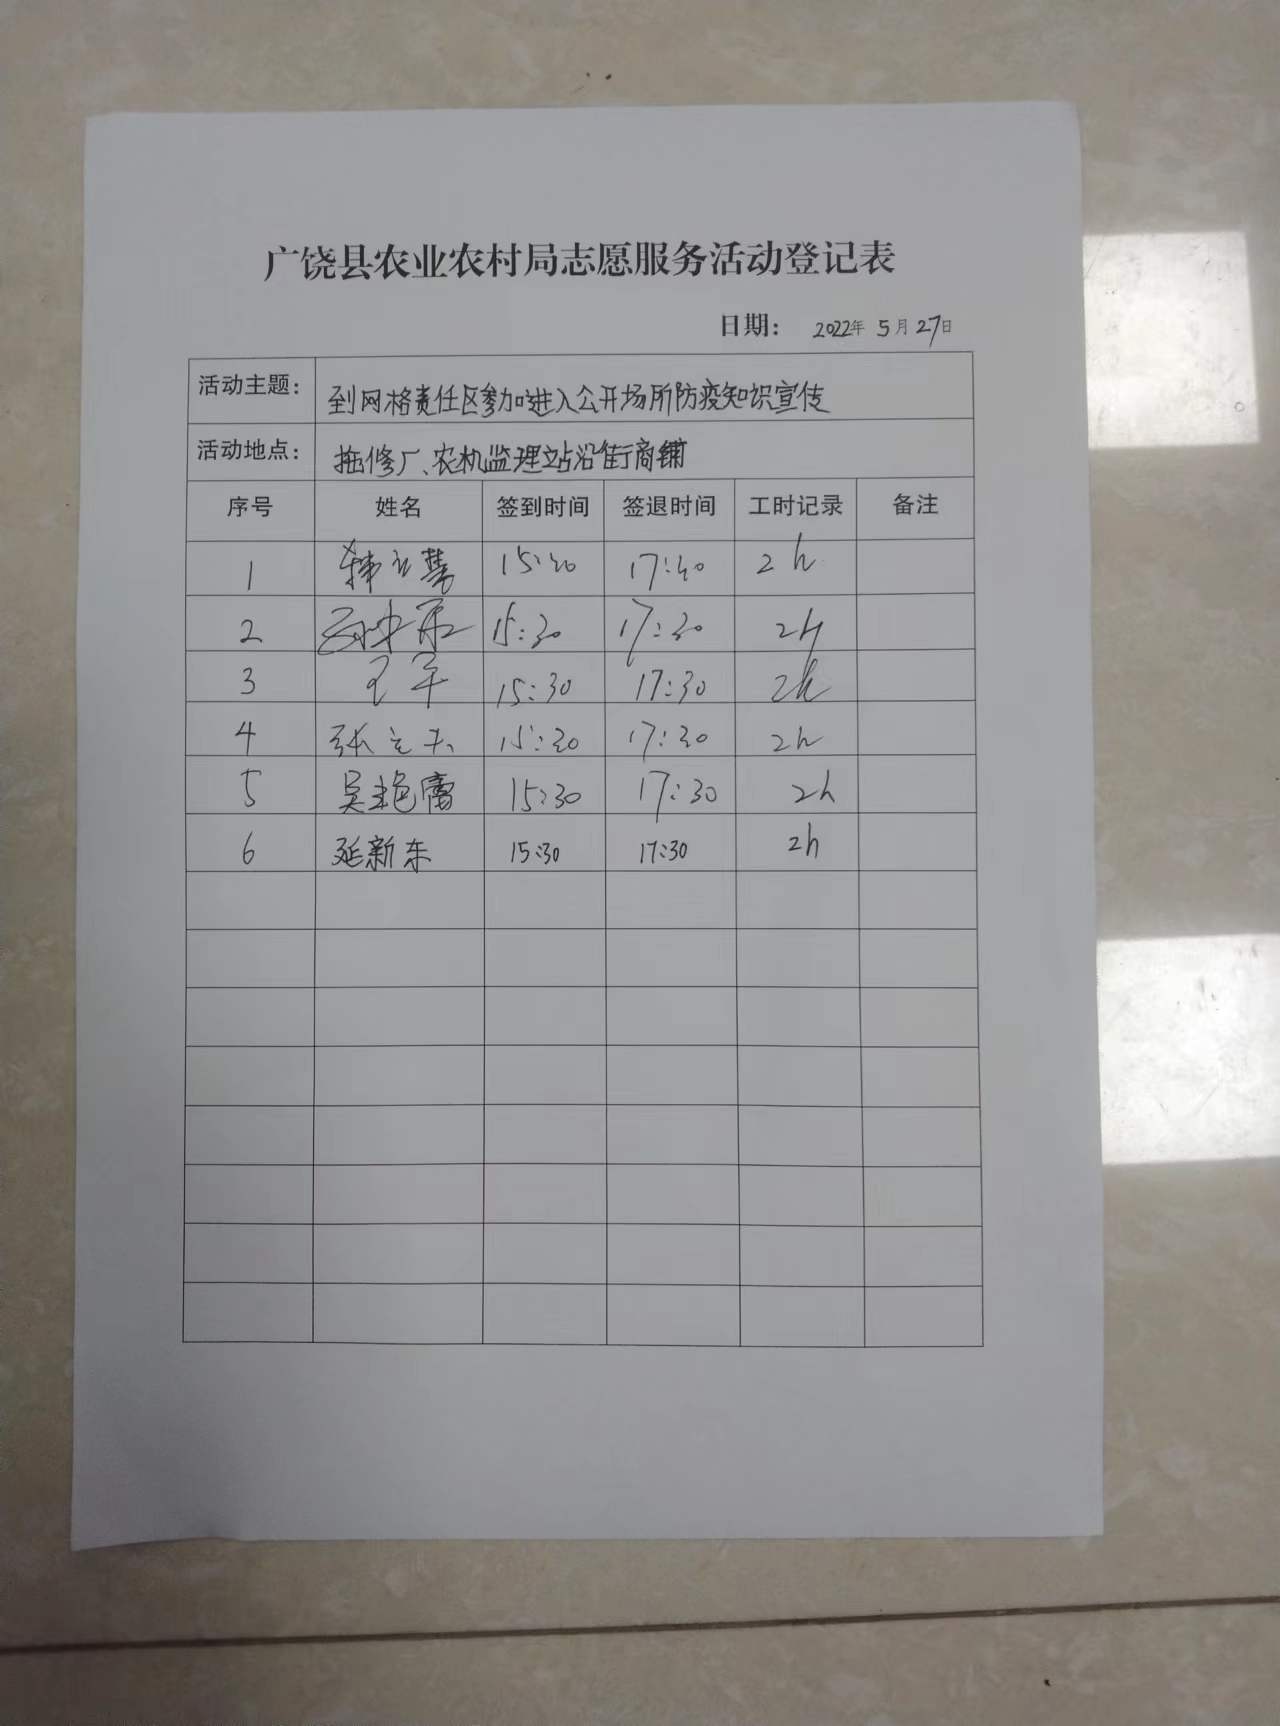 广饶县农业农村局志愿服务活动登记表
日期： 2022年 5月27日
活动主题： 到网格责任区参加进入公开场所防疫知识宣传
活动地点： 拖修厂、农机监理站沿街商铺
序号 姓名 签到时间 签退时间 工时记录 备注
1 15:30 17:30 2h
2 15:30 17:30 2h
3 15:30 17:30 2h
4 张 15:30 17:30 2h
5 吴艳蕾 15:30 17:30 2h
6 延新东 15:30 17:30 2h